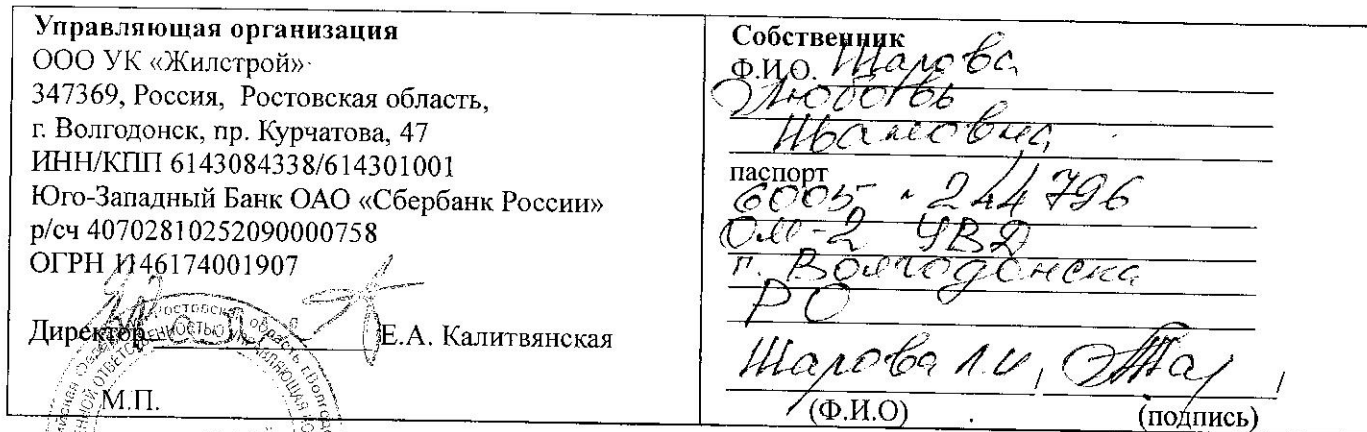 Управляющая организация
ООО УК «Жилстрой»
347369, Россия, Ростовская область,
г. Волгодонск, пр. Курчатова, 47
ИНН/КПП 6143084338/614301001
Юго-Западный Банк ОАО «Сбербанк России»
р/сч 40702810252090000758
ОГРН 1146174001907
Директор Е.А. Калитвянская
М.П.
Собственник
Ф.И.О. Шарова
Любовь
Ивановна
паспорт
6005 244796
ОМ-2 УВД
г. Волгодонска
РО
Шарова Л.И,
(Ф.И.О) (подпись)